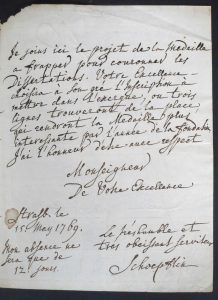 Je joins ici le projet de la medaille
a frapper pour couronner les
Dissertations. Votre Excellence
choisira à son gré l'Inscription à
mettre dans l'exergue, ou trois
lignes trouveront de la place
qui rendront la Medaille plus
interessante par l'année de la fondation
J'ai l'honneur d'être avec respect
Monseigneur
De Votre Excellence
Strasb. le
15. May 1769.
Mon absence ne
sera que de
12. jours.
Le très humble et
très obeissant serviteur
Schoepflin